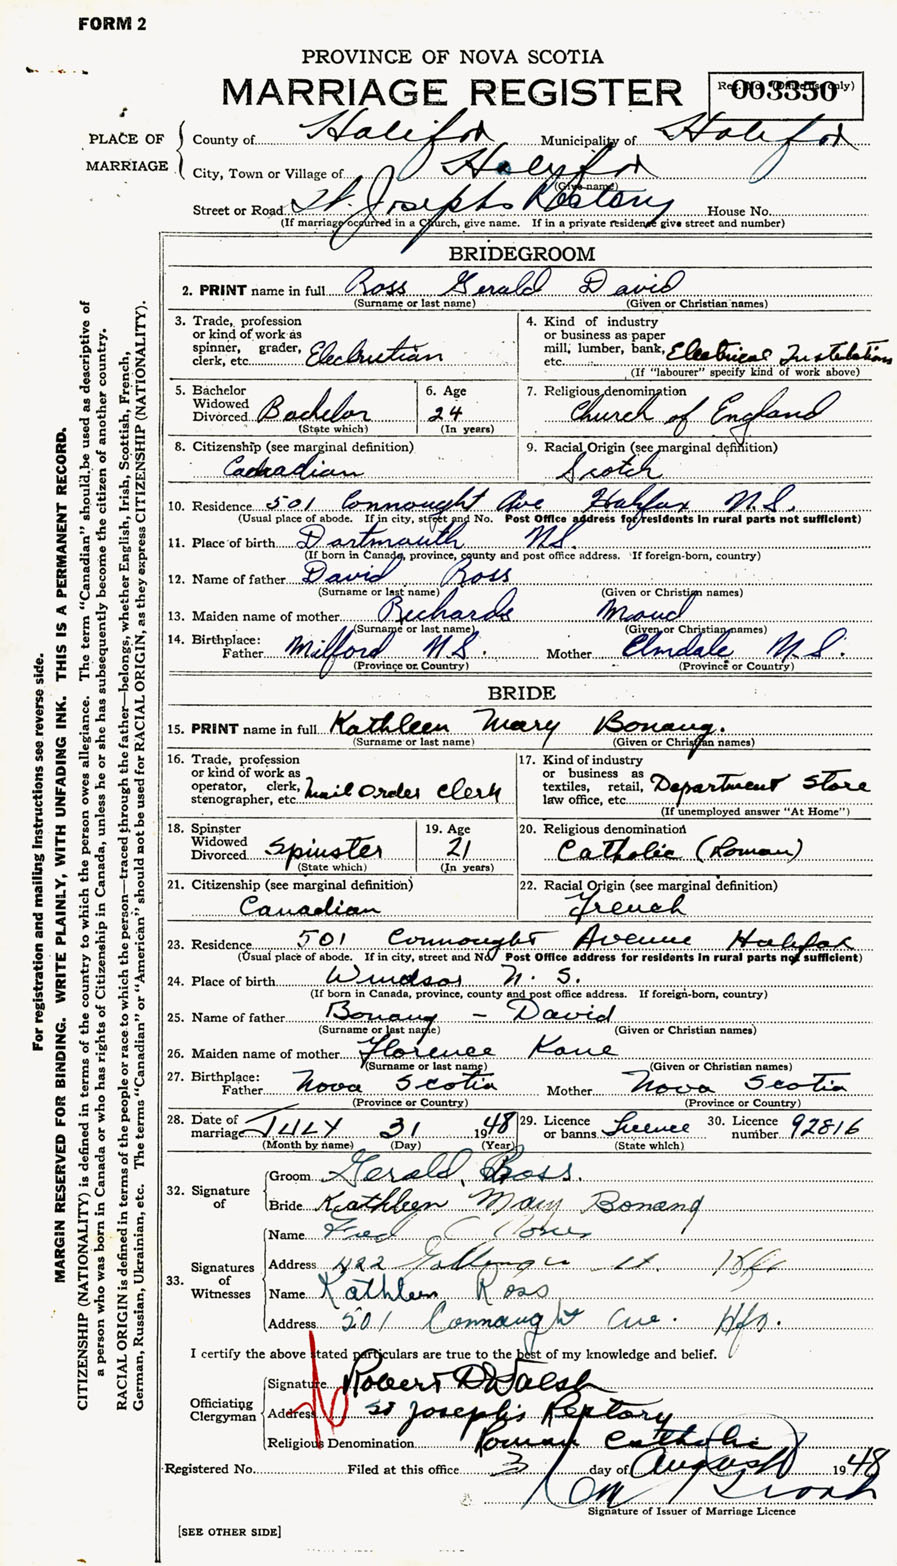 FORM 2
PROVINCE OF NOVA SCOTIA
MARRIAGE REGISTER
003350
PLACE OF MARRIAGE
County of Halifax Municipality of Halifax
City, Town or Village of Halyfax
(Give name)
Street or Road St. Josephs Rectory House No.
(If marriage occurred in a Church, give name. If in a private residence give street and number)
BRIDEGROOM
2. PRINT name in full Ross Gerald David
(Surname or last name) (Given or Christian names)
3. Trade, profession or kind of work as spinner, grader, clerk, etc. Electrition
4. Kind of industry or business as paper mill, lumber, bank, etc. Electrical Instulations
(If "labourer" specify kind of work above)
5. Bachelor Widowed Divorced Bachelor
(State which)
6. Age 24
(In years)
7. Religious denomination Church of England
8. Citizenship (see marginal definition) Canadian
9. Racial Origin (see marginal definition) Scotch
10. Residence 501 Connought Ave Halifax N.S.
(Usual place of abode. If in city, street and No. Post Office address for residents in rural parts not sufficient)
11. Place of birth Dartmouth NS
(If born in Canada, province, county and post office address. If foreign-born, country)
12. Name of father David Ross
(Surname or last name) (Given or Christian names)
13. Maiden name of mother Richards Maud
(Surname or last name) (Given or Christian names)
14. Birthplace: Father Milford N.S. Mother Elmdale N.S.
(Province or Country) (Province or Country)
BRIDE
15. PRINT name in full Kathleen Mary Bonang.
(Surname or last name) (Given or Christian names)
16. Trade, profession or kind of work as operator, clerk, stenographer, etc. Mail Order Clerk
17. Kind of industry or business as textiles, retail, law office, etc. Department Store
(If unemployed answer "At Home")
18. Spinster Widowed Divorced Spinster
(State which)
19. Age 21
(In years)
20. Religious denomination Catholic (Roman)
21. Citizenship (see marginal definition) Canadian
22. Racial Origin (see marginal definition) French
23. Residence 501 Connought Avenue Halifax
(Usual place of abode. If in city, street and No. Post Office address for residents in rural parts not sufficient)
24. Place of birth Windsor N. S.
(If born in Canada, province, county and post office address. If foreign-born, country)
25. Name of father Bonang - David
(Surname or last name) (Given or Christian names)
26. Maiden name of mother Florence Kane
(Surname or last name) (Given or Christian names)
27. Birthplace: Father Nova Scotia Mother Nova Scotia
(Province or Country) (Province or Country)
28. Date of marriage JULY 31 1948
(Month by name) (Day) (Year)
29. Licence or banns Licence
(State which)
30. Licence number 92816
32. Signature of
Groom Gerald Ross.
Bride Kathleen Mary Bonang
33. Signatures of Witnesses
Name Fred C
Address 422 St. Hfx
Name Kathleen Ross
Address 501 Connaught Ave. Hfx.
I certify the above stated particulars are true to the best of my knowledge and belief.
Officiating Clergyman
Signature Robert D Walsh
Address St Joseph's Rectory
Religious Denomination Roman Catholic
Registered No. Filed at this office 3 day of August 1948
Signature of Issuer of Marriage Licence
[SEE OTHER SIDE]
For registration and mailing instructions see reverse side.
MARGIN RESERVED FOR BINDING. WRITE PLAINLY, WITH UNFADING INK. THIS IS A PERMANENT RECORD.
CITIZENSHIP (NATIONALITY) is defined in terms of the country to which the person owes allegiance. The term "Canadian" should be used as descriptive of
a person who was born in Canada or who has rights of Citizenship in Canada, unless he or she has subsequently become the citizen of another country.
RACIAL ORIGIN is defined in terms of the people or race to which the person—traced through the father—belongs, whether English, Irish, Scottish, French,
German, Russian, Ukrainian, etc. The terms "Canadian" or "American" should not be used for RACIAL ORIGIN, as they express CITIZENSHIP (NATIONALITY).